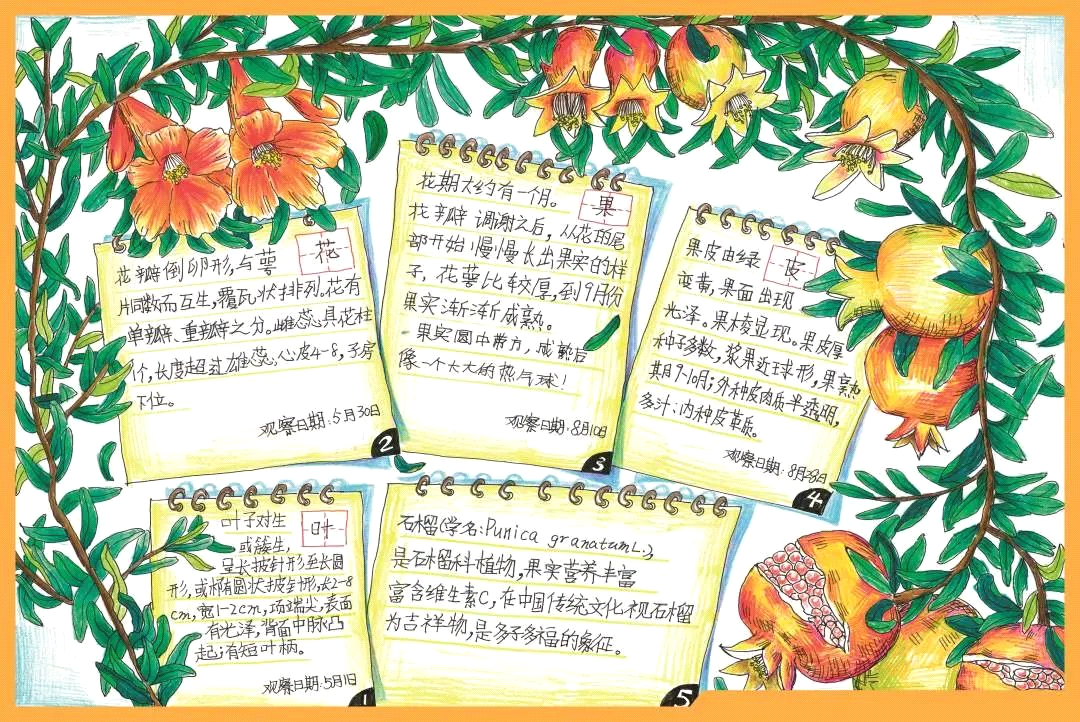 花
花瓣倒卵形,与萼
片同数而互生,覆瓦状排列。花有
单瓣、重瓣之分。雌蕊具花柱
1个,长度超过雄蕊,心皮4-8,子房
下位。
观察日期:5月30日
2
果
花期大约有一个月。
花瓣调谢之后,从花的尾
部开始慢慢长出果实的样
子,花萼比较厚,到9月份
果实渐渐成熟。
果实圆中带方,成熟后
像一个大大的热气球!
观察日期:8月10日
3
皮
果皮由绿
变黄,果面出现
光泽。果棱显现。果皮厚
种子多数,浆果近球形,果熟
期9-10月;外种皮肉质半透明,
多汁;内种皮革质。
观察日期:8月28日
4
叶
叶子对生
或簇生,
呈长披针形至长圆
形,或椭圆状披针形,长2-8
cm,宽1-2cm,顶端尖,表面
有光泽,背面中脉凸
起;有短叶柄。
观察日期:5月1日
1
石榴(学名:Punica granatum L.),
是石榴科植物,果实营养丰富
富含维生素C,在中国传统文化视石榴
为吉祥物,是多子多福的象征。
5